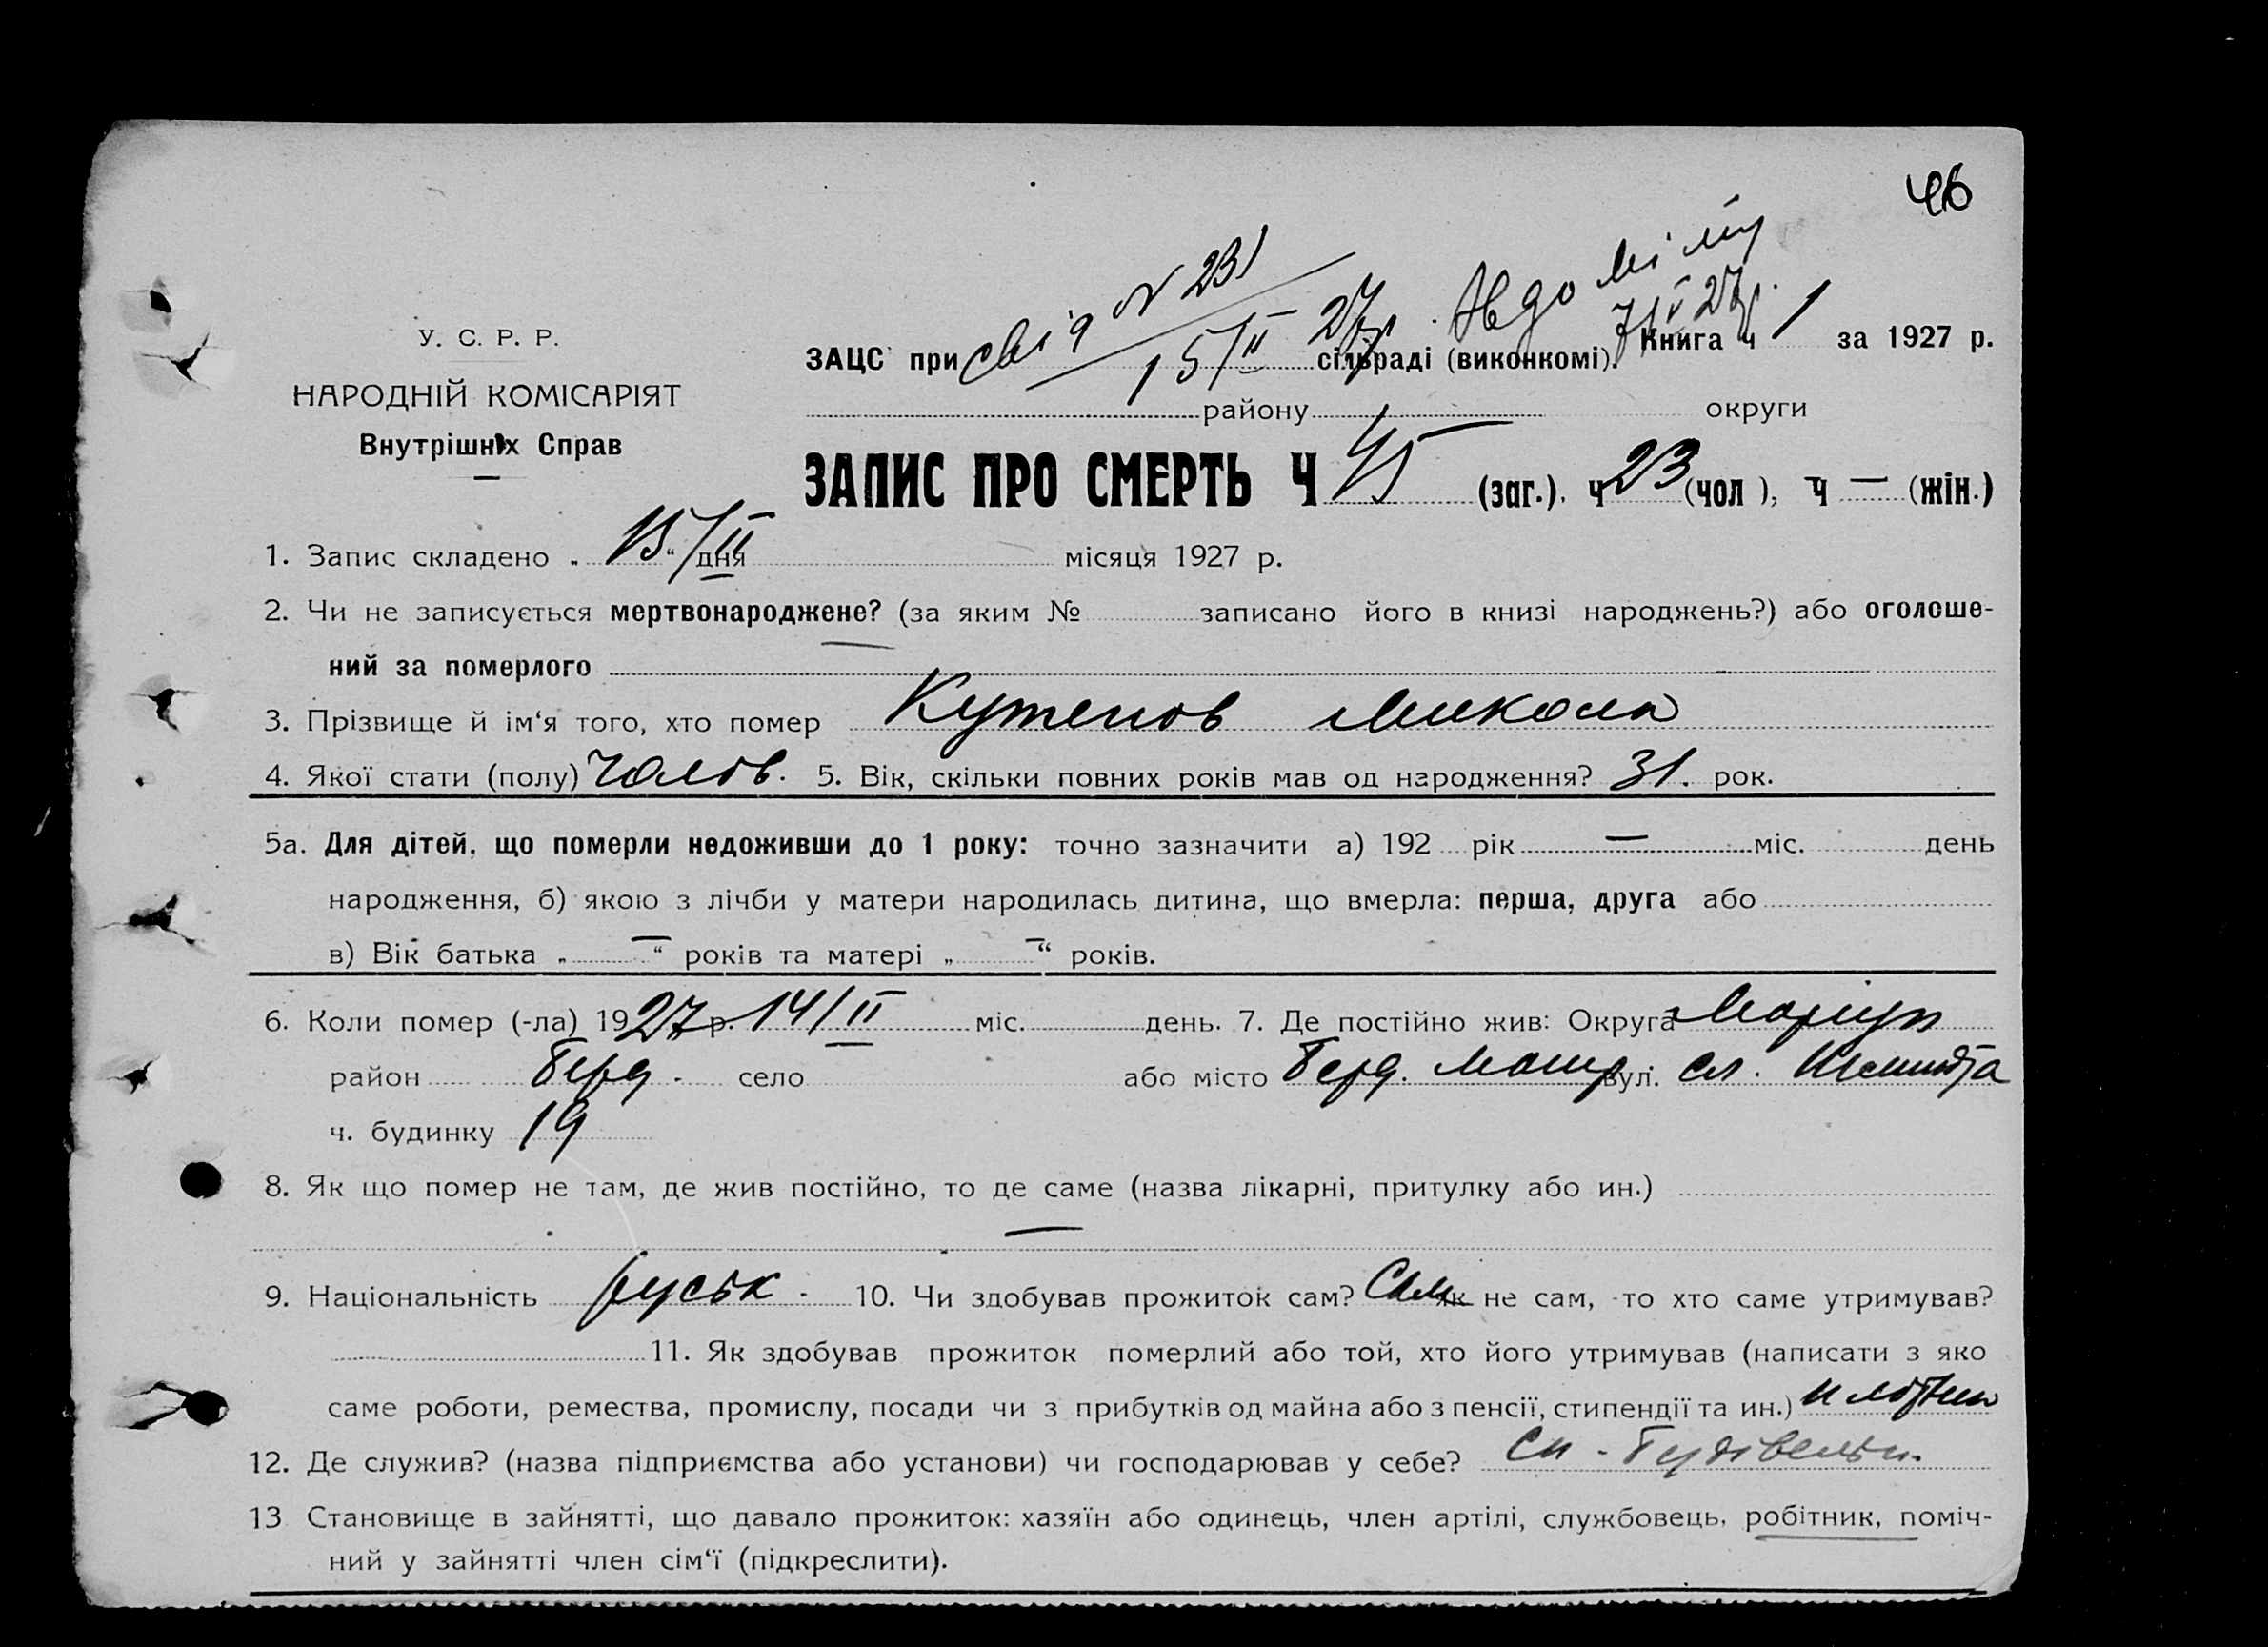 46
свід N 231
15/II 27р.
7/V 27р.
У. С. Р. Р.
НАРОДНІЙ КОМІСАРІЯТ
Внутрішніх Справ
ЗАЦС при сільраді (виконкомі). Книга ч 1 за 1927 р.
району округи
ЗАПИС ПРО СМЕРТЬ Ч 45 (заг.), ч 23 (чол), ч — (жін.)
1. Запис складено „ 15/II “ дня місяця 1927 р.
2. Чи не записується мертвонароджене? (за яким № записано його в книзі народжень?) або оголоше-
ний за померлого —
3. Прізвище й ім‘я того, хто помер Кутепов Микола
4. Якої стати (полу) Чолов. 5. Вік, скільки повних років мав од народження? 31. рок.
5а. Для дітей, що померли недоживши до 1 року: точно зазначити а) 192 рік — міс. день
народження, б) якою з лічби у матери народилась дитина, що вмерла: перша, друга або
в) Вік батька „ — “ років та матері „ — “ років.
6. Коли помер (-ла) 1927 р. 14/II міс. день. 7. Де постійно жив: Округа Маріуп
район Берд. село або місто Берд. вул. сл. Шмидта
ч. будинку 19
8. Як що помер не там, де жив постійно, то де саме (назва лікарні, притулку або ин.)
—
9. Національність руськ. 10. Чи здобував прожиток сам? Сам як не сам, то хто саме утримував?
11. Як здобував прожиток померлий або той, хто його утримував (написати з яко
саме роботи, ремества, промислу, посади чи з прибутків од майна або з пенсії, стипендії та ин.)
12. Де служив? (назва підприємства або установи) чи господарював у себе? Сп - Будівельн.
13 Становище в зайнятті, що давало прожиток: хазяїн або одинець, член артілі, службовець, робітник, поміч-
ний у зайнятті член сім‘ї (підкреслити).